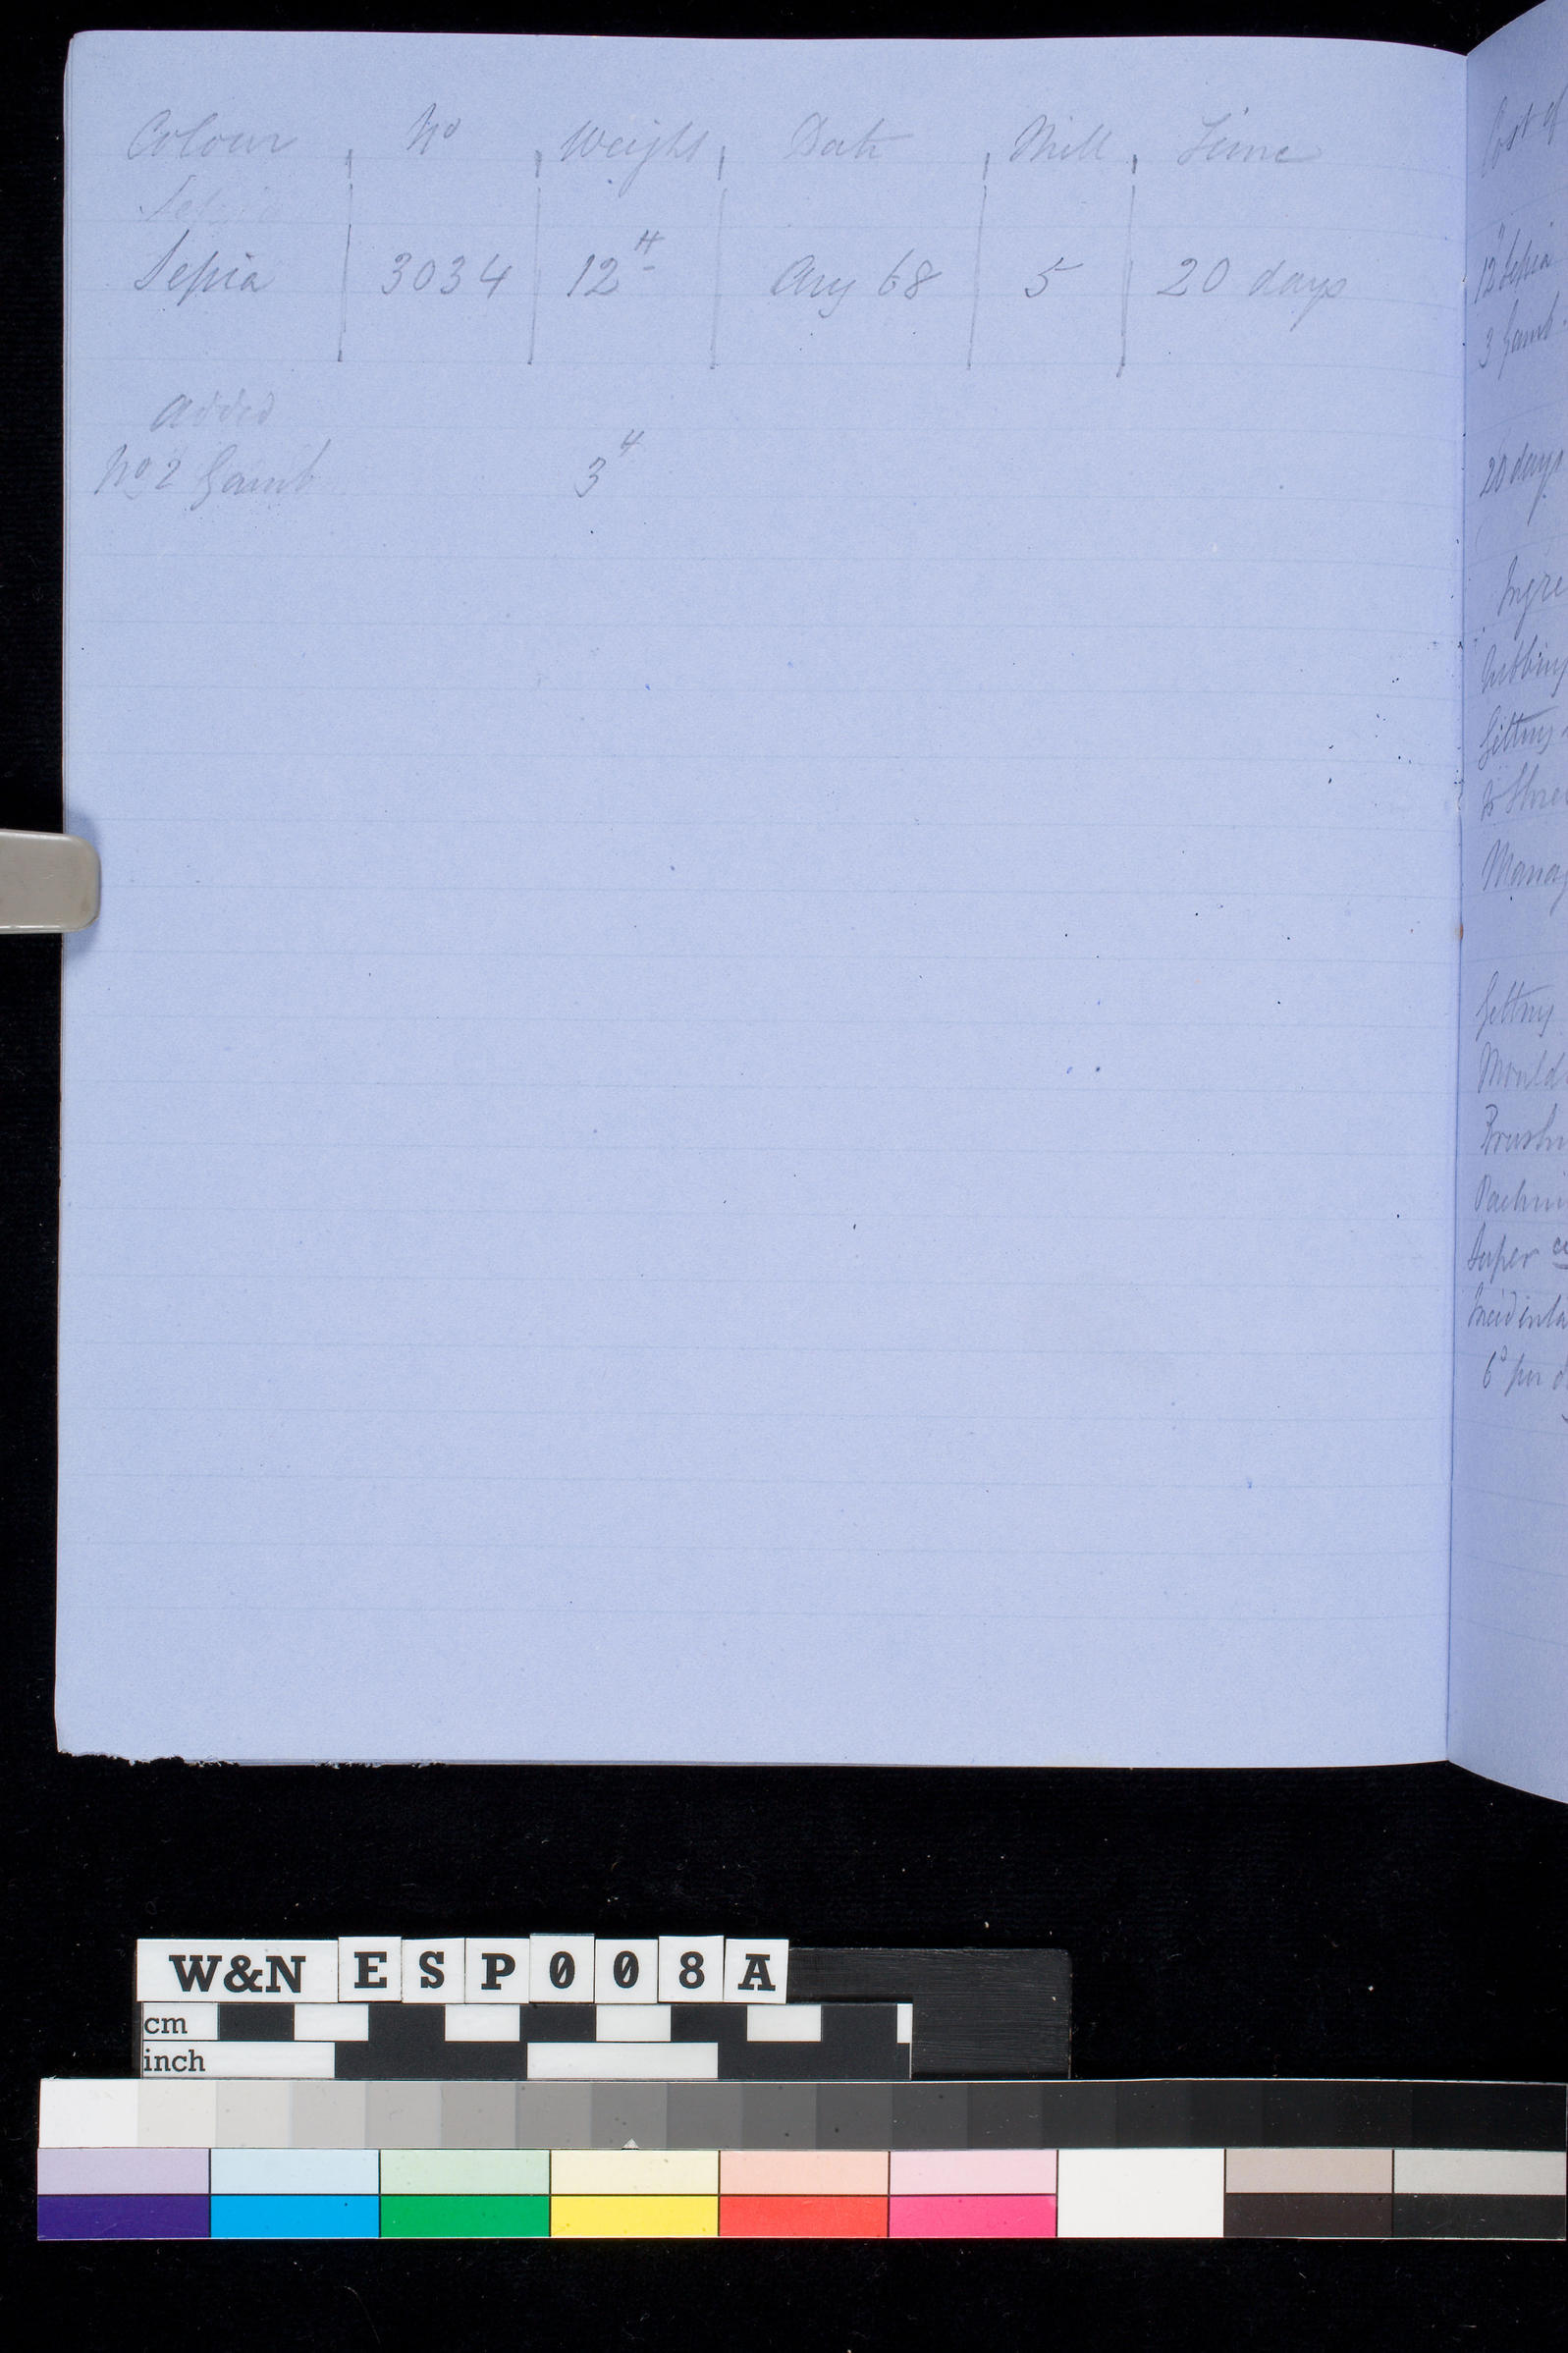 Colour No Weight Date Mill Time
Sepia
Sepia 3034 12 # Aug 68 5 20 days
added
No 2 Gamb 3 #
Cost of
12 # Sepia
3 Gamb
20 days
Ingre
Rubbing
Getting
to Stove
Manag
Getting
Mould
Brush
Packin
Super
Incidenta
6d per
W&N ESP008A
cm
inch